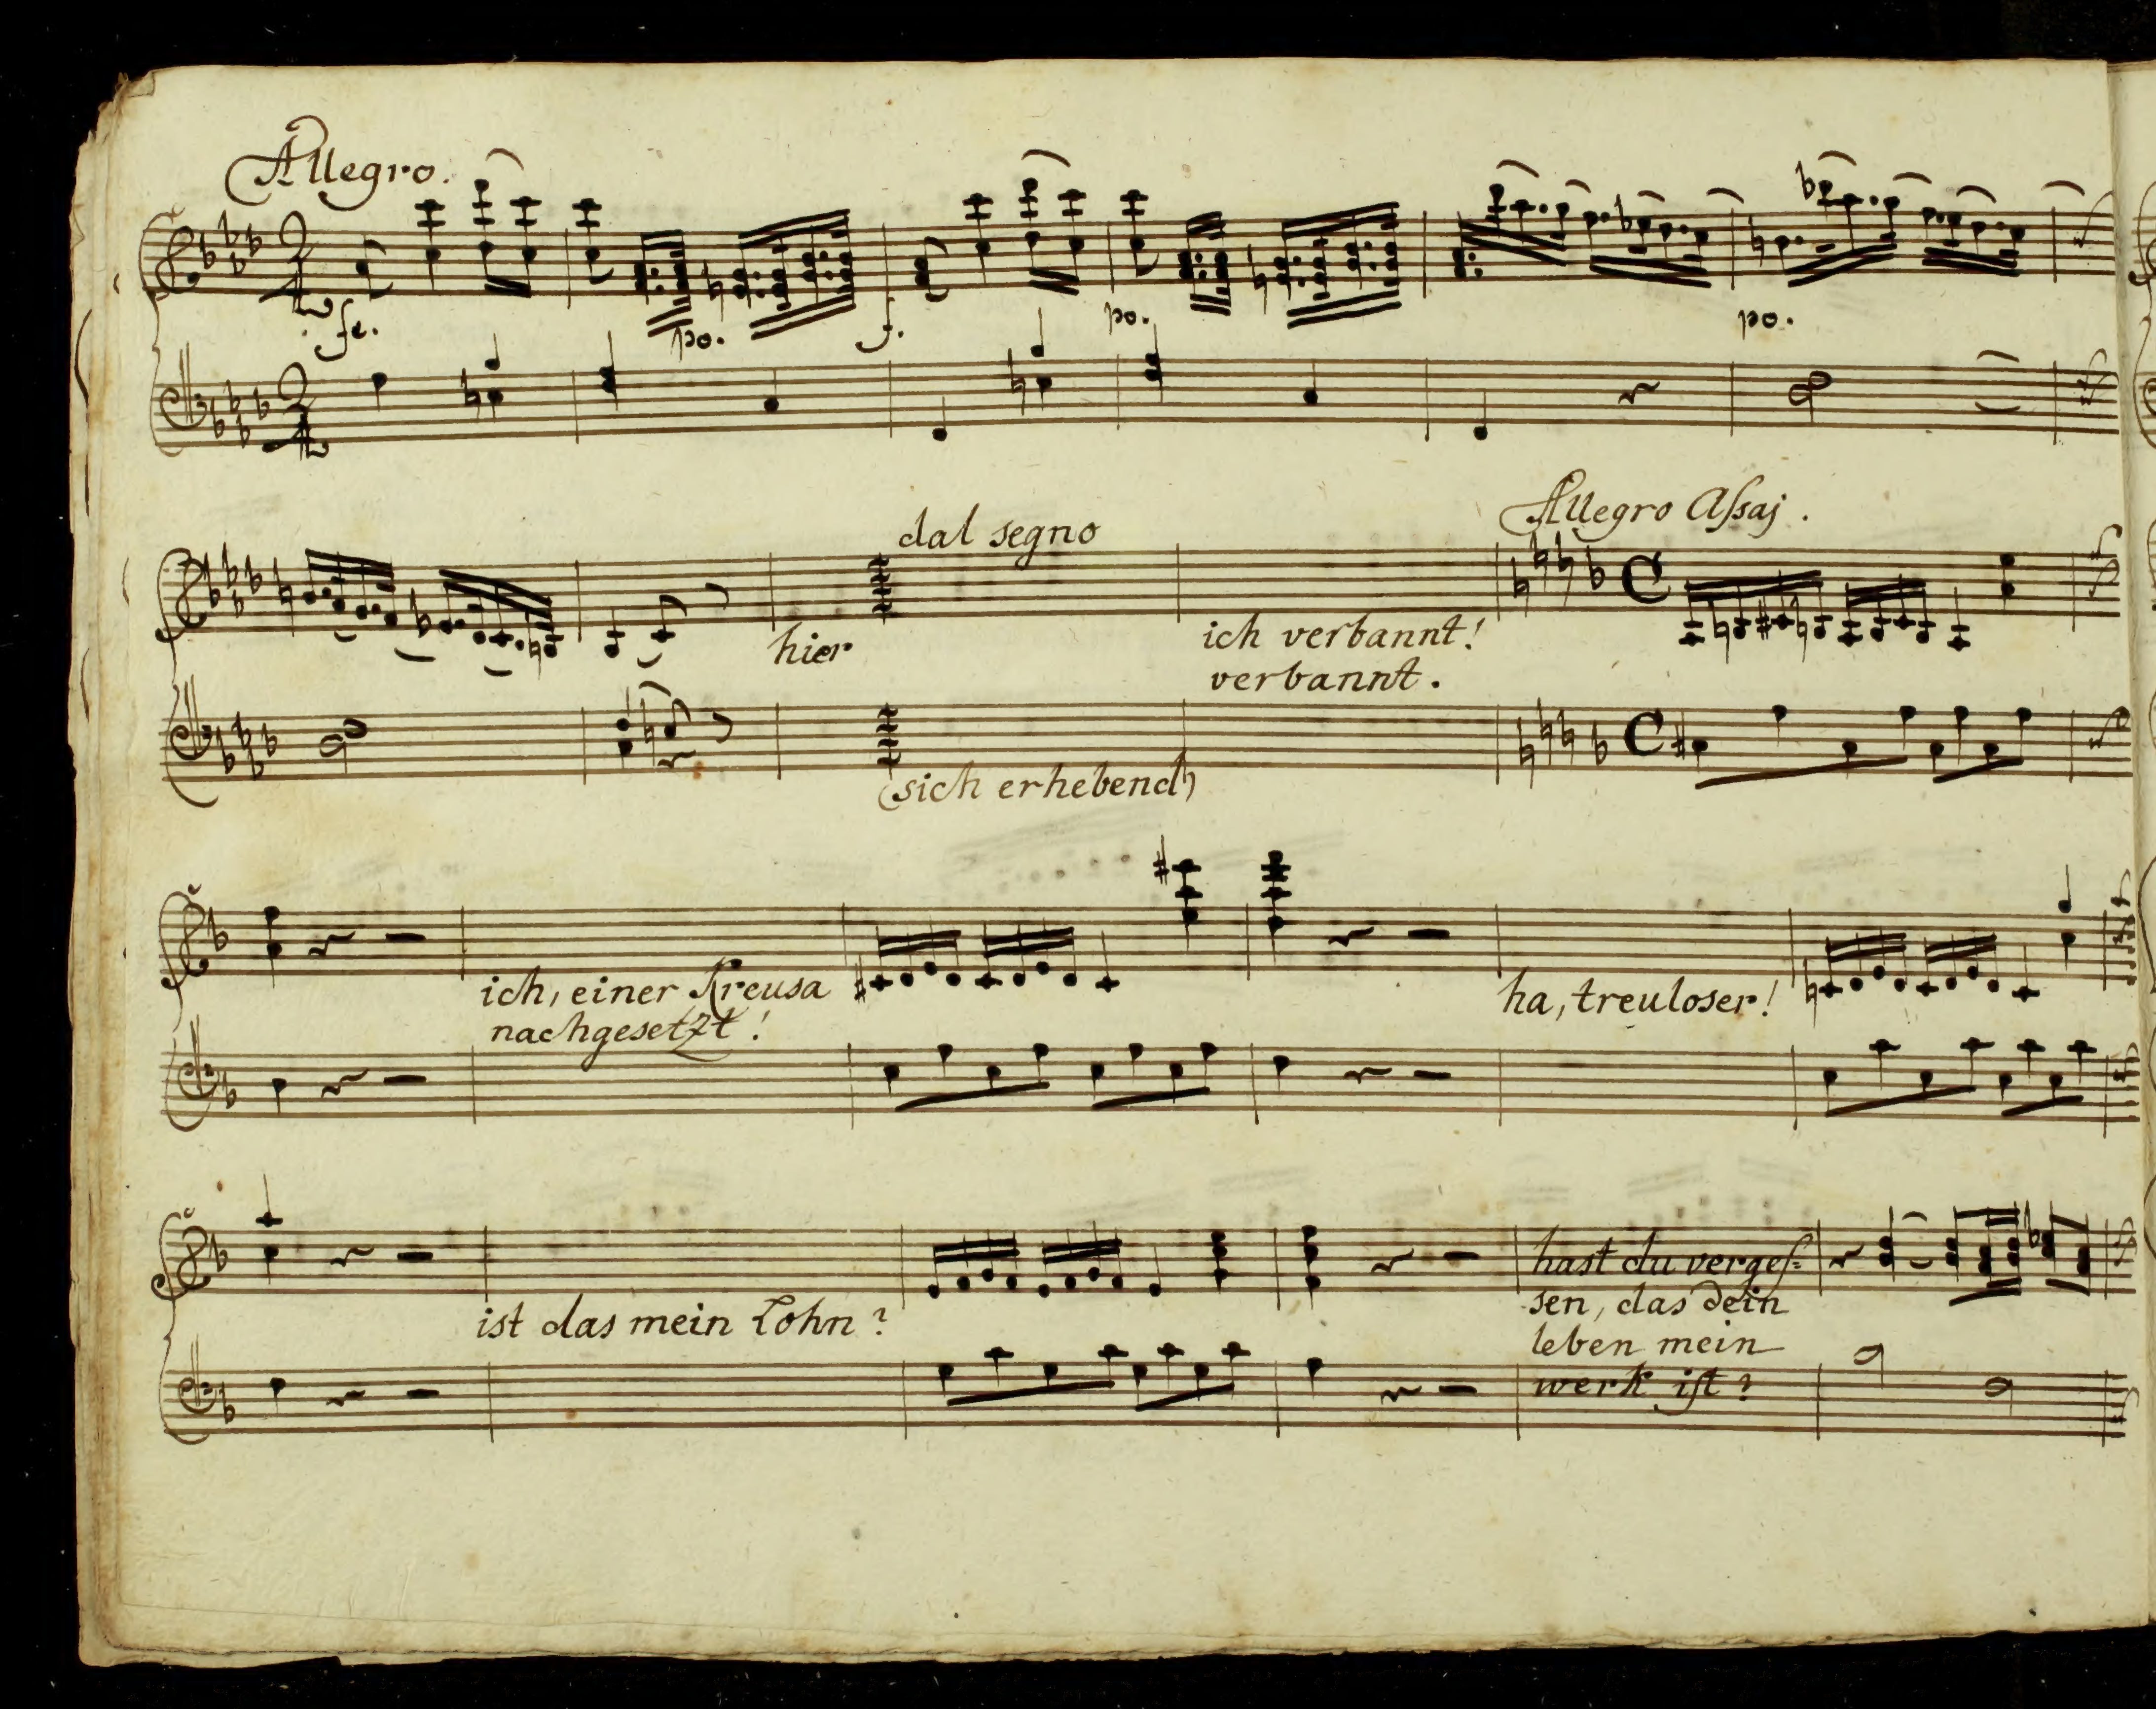 Allegro.
fe.
po.
f.
po.
po.
dal segno
Allegro Aſsaj.
hier
ich verbannt!
verbannt.
(sich erhebend)
ich, einer Kreusa
nachgesetzt!
ha, treuloser!
ist das mein Lohn?
hast du vergeſ=
sen, das dein
leben mein
werk iſt?